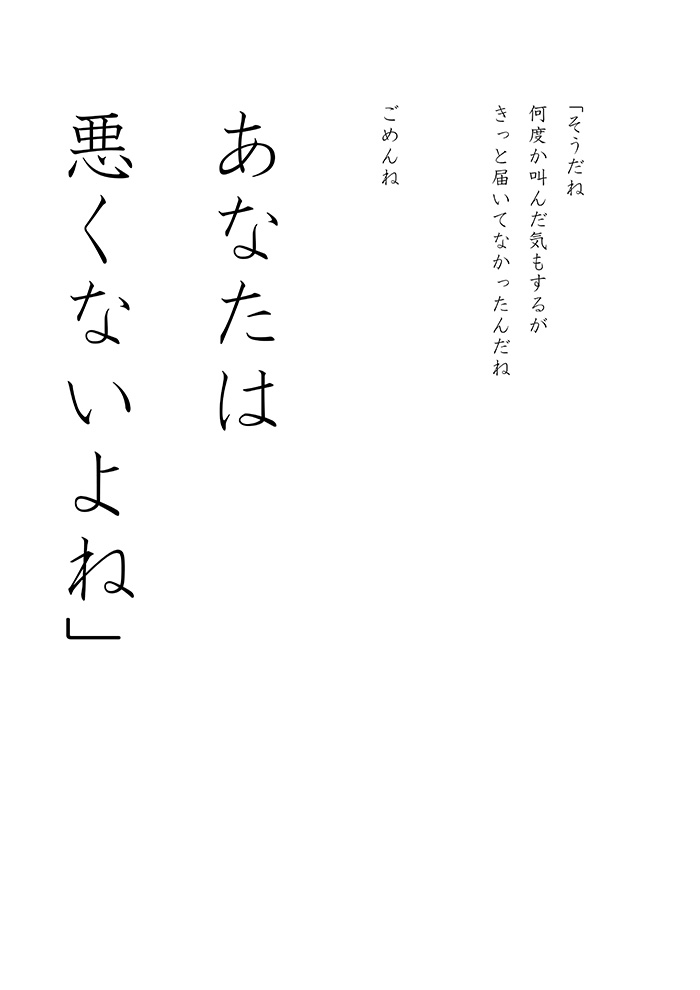 「そうだね
何度か叫んだ気もするが
きっと届いてなかったんだね
ごめんね
あなたは
悪くないよね」